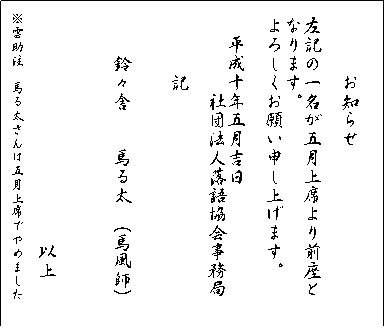 お知らせ
左記の一名が五月上席より前座と
なります。
よろしくお願い申し上げます。
平成十年五月吉日
社団法人落語協会事務局
記
鈴々舎 馬る太 (馬風師)
以上
※雲助注 馬る太さんは五月上席でやめました